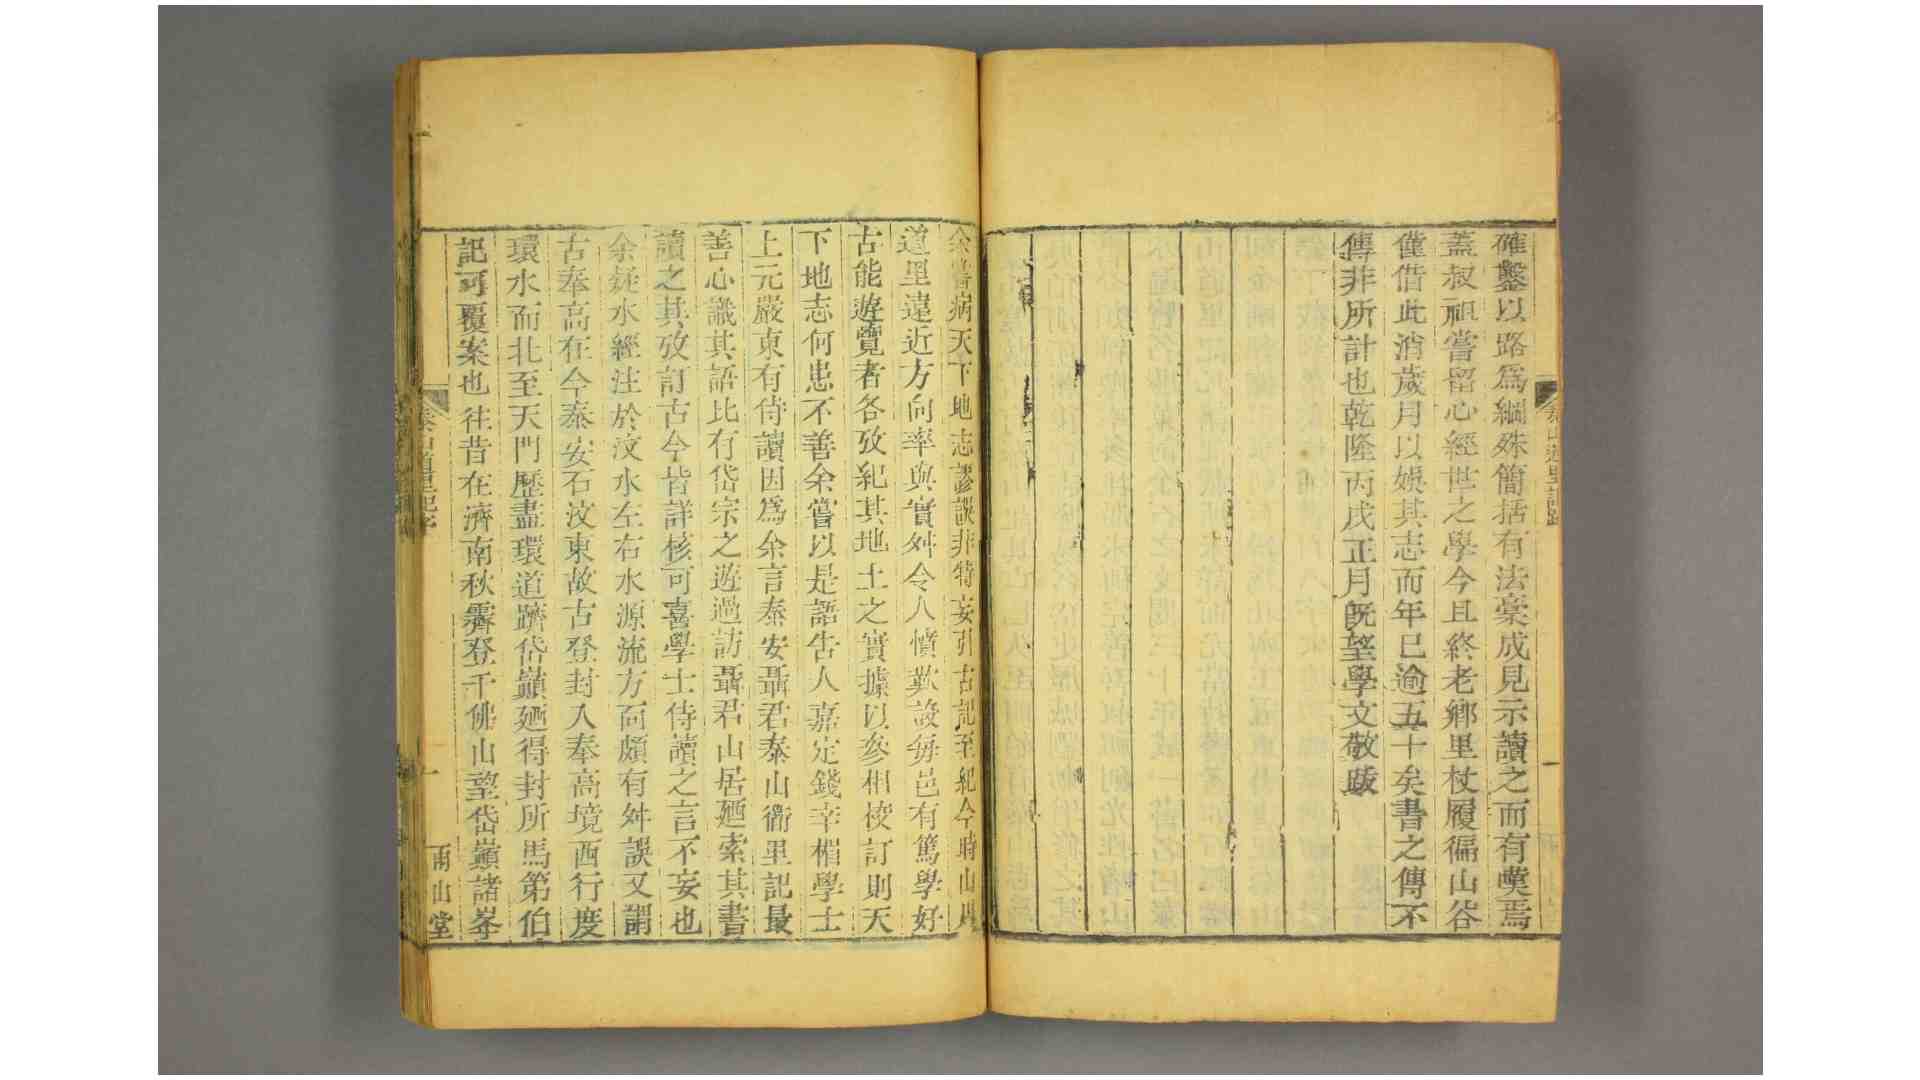 確鑿以路爲綱殊簡括有法稾成見示讀之而有嘆焉
蓋叔祖嘗留心經世之學今且終老鄉里杖履徧山谷
僅借此消歲月以娛其志而年已逾五十矣書之傳不
傳非所計也乾隆丙戌正月旣望學文敬䟦
余嘗病天下地志謬誤非特妄引古記至紀今時山川
道里遠近方向率與實舛令人憤歎設每邑有篤學好
古能遊覽者各攷紀其地土之實據以參相校訂則天
下地志何患不善余嘗以是語告人嘉定錢辛楣學士
上元嚴東有侍讀因爲余言泰安聶君泰山衜里記最
善心識其語比有岱宗之遊過訪聶君山居廼索其書
讀之其攷訂古今皆詳核可喜學士侍讀之言不妄也
余疑水經注於汶水左右水源流方向頗有舛誤又謂
古奉高在今泰安石汶東故古登封入奉高境西行度
環水而北至天門歷盡環道躋岱巔廼得封所馬第伯
記可覆案也往昔在濟南秋霽登千佛山望岱巔諸峯
泰山道里記序
一
雨山堂